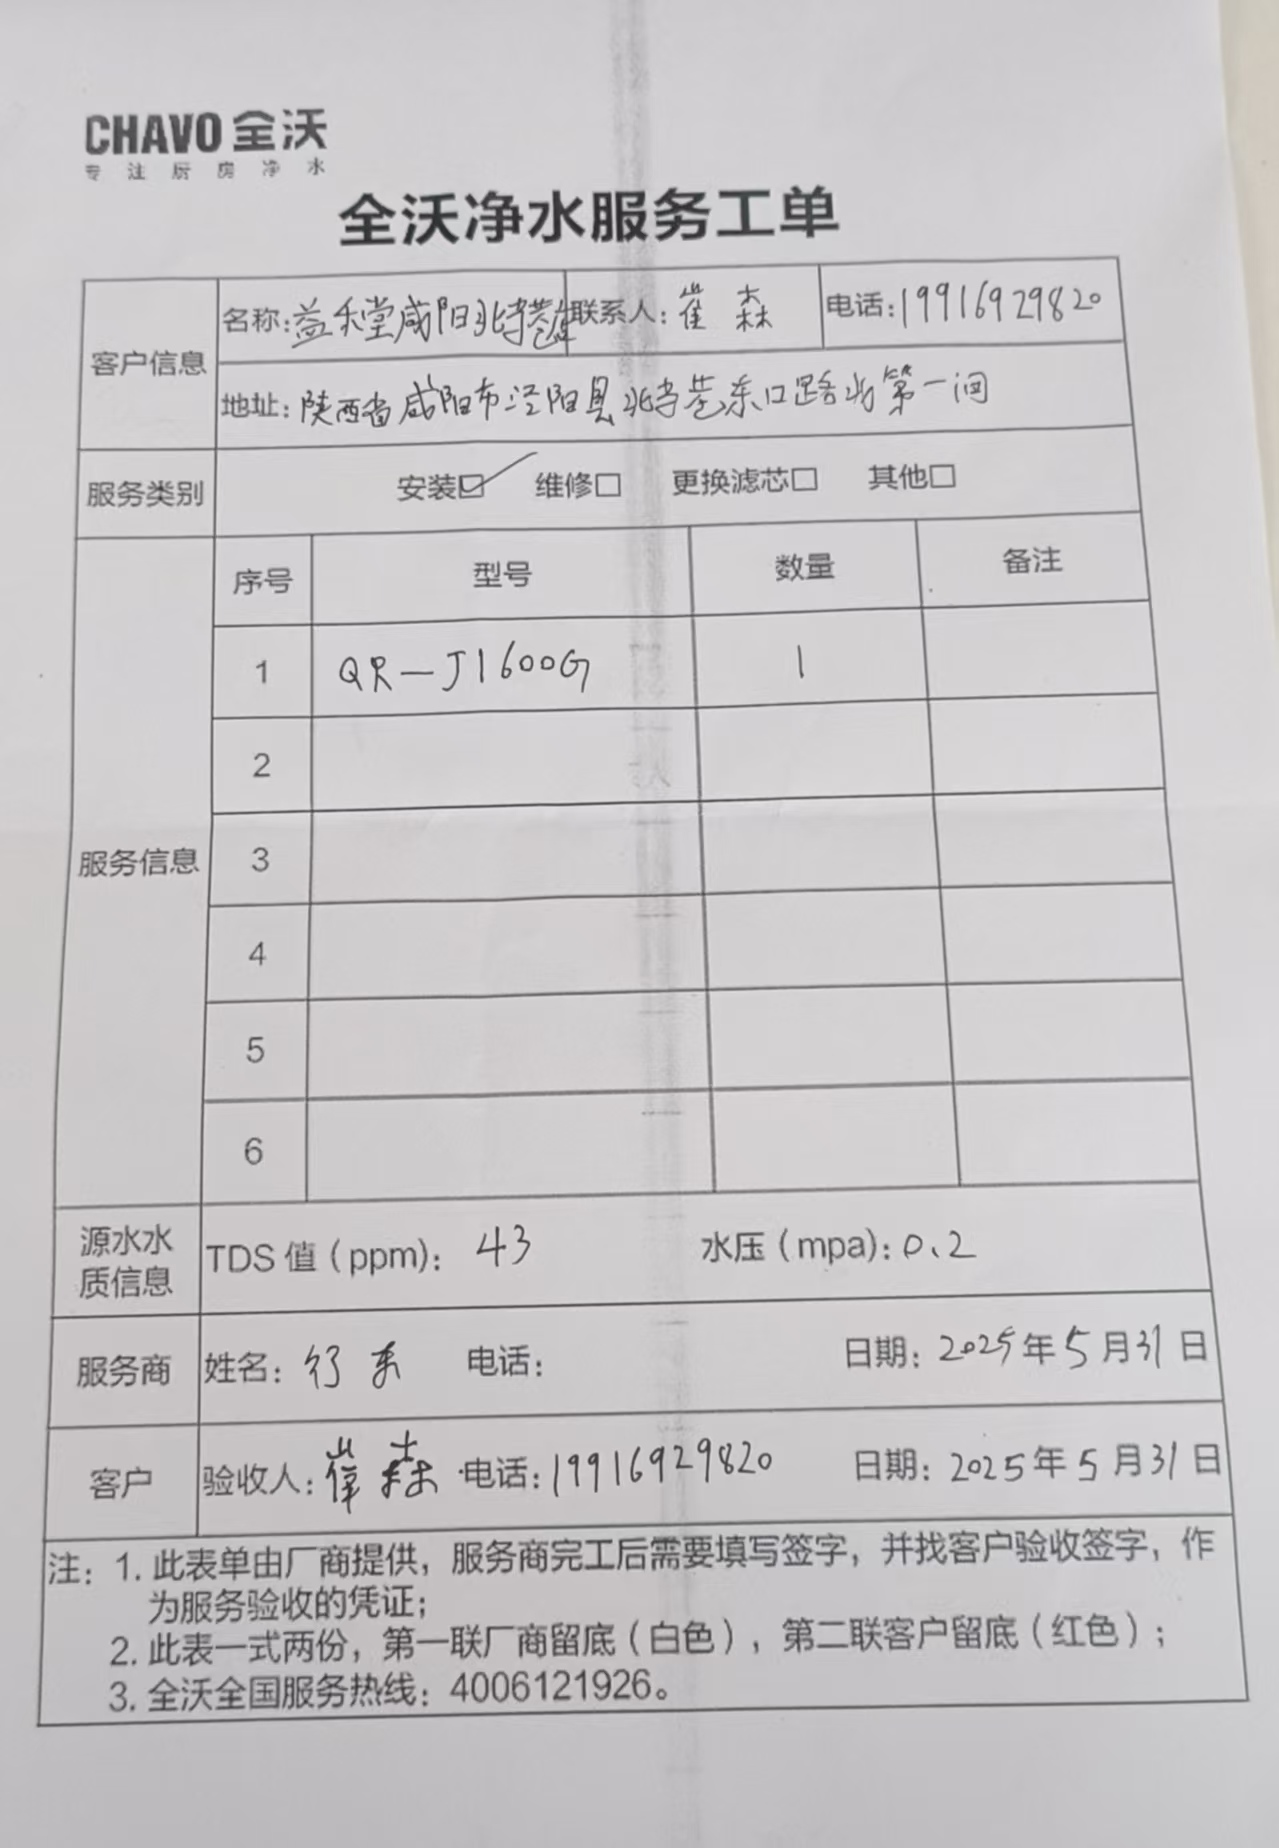 CHAVO 全沃
专注厨房净水
全沃净水服务工单
客户信息
名称:益禾堂咸阳北 联系人:崔森 电话:19916929820
地址:陕西省咸阳市泾阳县北 巷东口路北第一间
服务类别 安装☑ 维修□ 更换滤芯□ 其他□
服务信息
序号 型号 数量 备注
1 QR-J1600G 1
2
3
4
5
6
源水水质信息 TDS 值(ppm): 43 水压(mpa):0.2
服务商 姓名:行东 电话: 日期:2025年5月31日
客户 验收人:崔森 电话:19916929820 日期:2025年5月31日
注:1. 此表单由厂商提供,服务商完工后需要填写签字,并找客户验收签字,作
为服务验收的凭证;
2. 此表一式两份,第一联厂商留底(白色),第二联客户留底(红色);
3. 全沃全国服务热线:4006121926。